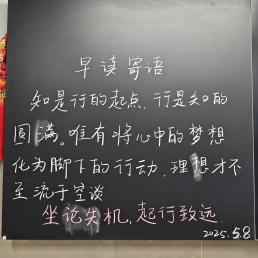 早读寄语
知是行的起点，行是知的
圆满。唯有将心中的梦想
化为脚下的行动，理想才不
至流于空谈
坐论失机，起行致远
2025.5.8